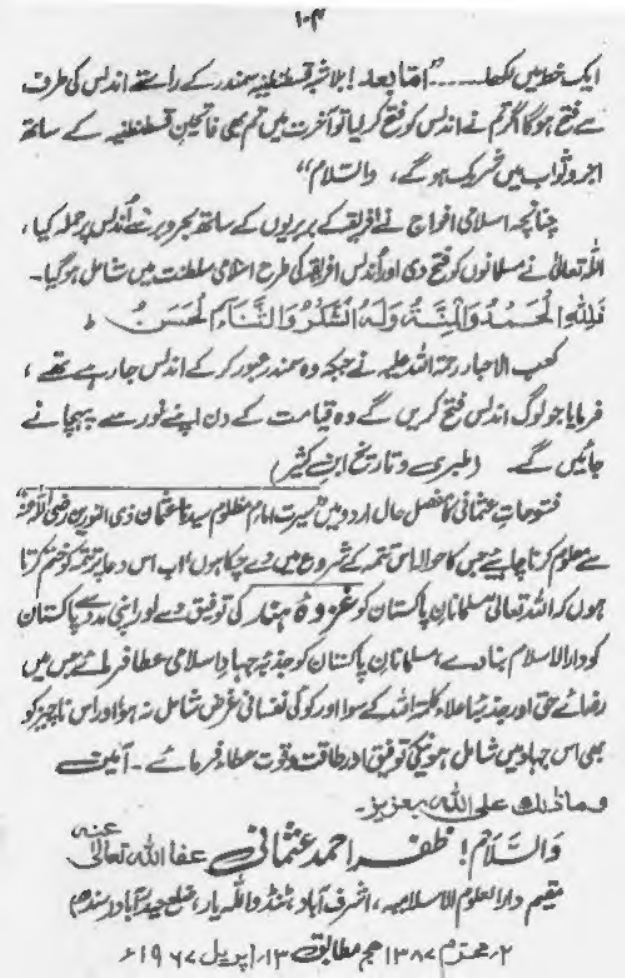 ۱۰۴
ایک خط میں لکھا۔۔۔۔۔۔ "امّا بعد! بلاشبہ قسطنطنیہ سمندر کے راستے اندلس کی طرف
سے فتح ہوگا اگر تم نے اندلس کو فتح کر لیا تو آخرت میں تم بھی فاتحین قسطنطنیہ کے ساتھ
اجر و ثواب میں شریک ہو گے، والسّلام"
چنانچہ اسلامی افواج نے افریقہ کے بربریوں کے ساتھ بحر و بر سے اُندلس پر حملہ کیا،
اللہ تعالیٰ نے مسلمانوں کو فتح دی اور اُندلس افریقہ کی طرح اسلامی سلطنت میں شامل ہوگیا۔
فَلِلّٰہِ الْحَمْدُ وَالْمِنَّۃُ وَلَہُ الشُّکْرُ وَالثَّنَاءُ الْحَسَنُ ط
کعب الاحبار رحمۃ اللہ علیہ نے جبکہ وہ سمندر عبور کر کے اندلس جا رہے تھے،
فرمایا جو لوگ اندلس فتح کریں گے وہ قیامت کے دن اپنے نور سے پہچانے
جائیں گے۔ (طبری و تاریخ ابن کثیر)
فتوحاتِ عثمانی کا مفصل حال اردو میں "سیرت امام مظلوم سیدنا عثمان ذی النورین رضی اللہ عنہ"
سے معلوم کرنا چاہیئے جس کا حوالہ اس تتمہ کے شروع میں دے چکا ہوں، اب اس دعا پر تتمہ کو ختم کرتا
ہوں کہ اللہ تعالیٰ مسلمانانِ پاکستان کو غزوۂ ہند کی توفیق دے اور اپنی مدد سے پاکستان
کو دارالاسلام بنا دے، مسلمانانِ پاکستان کو جذبۂ جہادِ اسلامی عطا فرمائے جس میں
رضائے حق اور جذبۂ اعلاء کلمۃ اللہ کے سوا اور کوئی نفسانی غرض شامل نہ ہو اور اس ناچیز کو
بھی اس جہاد میں شامل ہونیکی توفیق اور طاقت و قوت عطاء فرمائے۔ آمین
وما ذلک علی اللہ بعزیز۔
وَالسَّلَام! ظفر احمد عثمانی عفا اللہ تعالیٰ عنہ
مقیم دارالعلوم الاسلامیہ، اشرف آباد، ٹنڈو اللہ یار، ضلع حیدرآباد (سندھ)
۲؍محرم ۱۳۸۷ھج مطابق ۱۳؍اپریل ۱۹۶۷ء